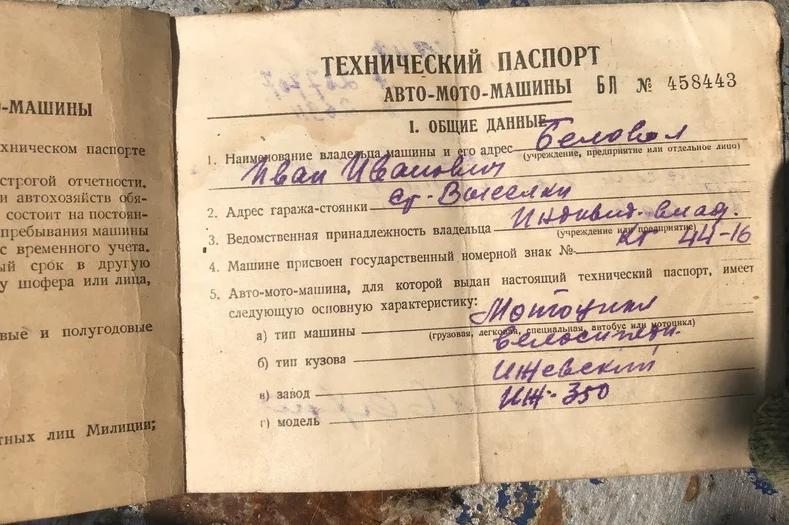 О-МАШИНЫ
ехническом паспорте
строгой отчетности.
и автохозяйств обя-
состоит на постоян-
пребывания машины
с временного учета.
ый срок в другую
у шофера или лица,
вые и полугодовые
тных лиц Милиции;
ТЕХНИЧЕСКИЙ ПАСПОРТ
АВТО-МОТО-МАШИНЫ БП № 458443
I. ОБЩИЕ ДАННЫЕ
1. Наименование владельца машины и его адрес Беловол
(учреждение, предприятие или отдельное лицо)
Иван Иванович
2. Адрес гаража-стоянки ст. Выселки
3. Ведомственная принадлежность владельца Индивид. влад.
(учреждение или предприятие)
4. Машине присвоен государственный номерной знак № КГ 44-16
5. Авто-мото-машина, для которой выдан настоящий технический паспорт, имеет
следующую основную характеристику:
а) тип машины Мотоцикл
(грузовая, легковая, специальная, автобус или мотоцикл)
б) тип кузова
в) завод Ижевский
г) модель ИЖ-350